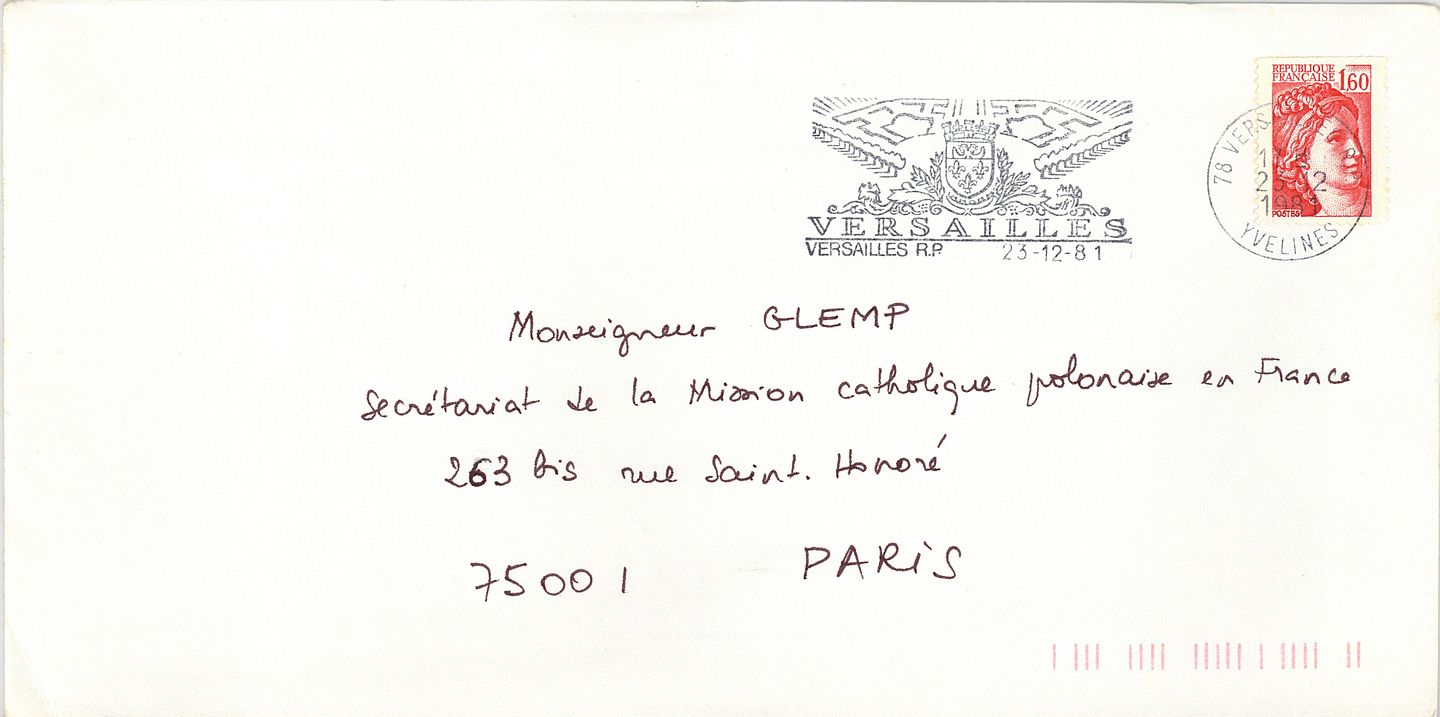 REPUBLIQUE
FRANÇAISE 1,60
POSTES
78 VERSAILLES R.P.
23-12
1981
YVELINES
VERSAILLES
VERSAILLES R.P. 23-12-81
Monseigneur GLEMP
Secrétariat de la Mission catholique polonaise en France
263 bis rue Saint. Honoré
75001 PARIS